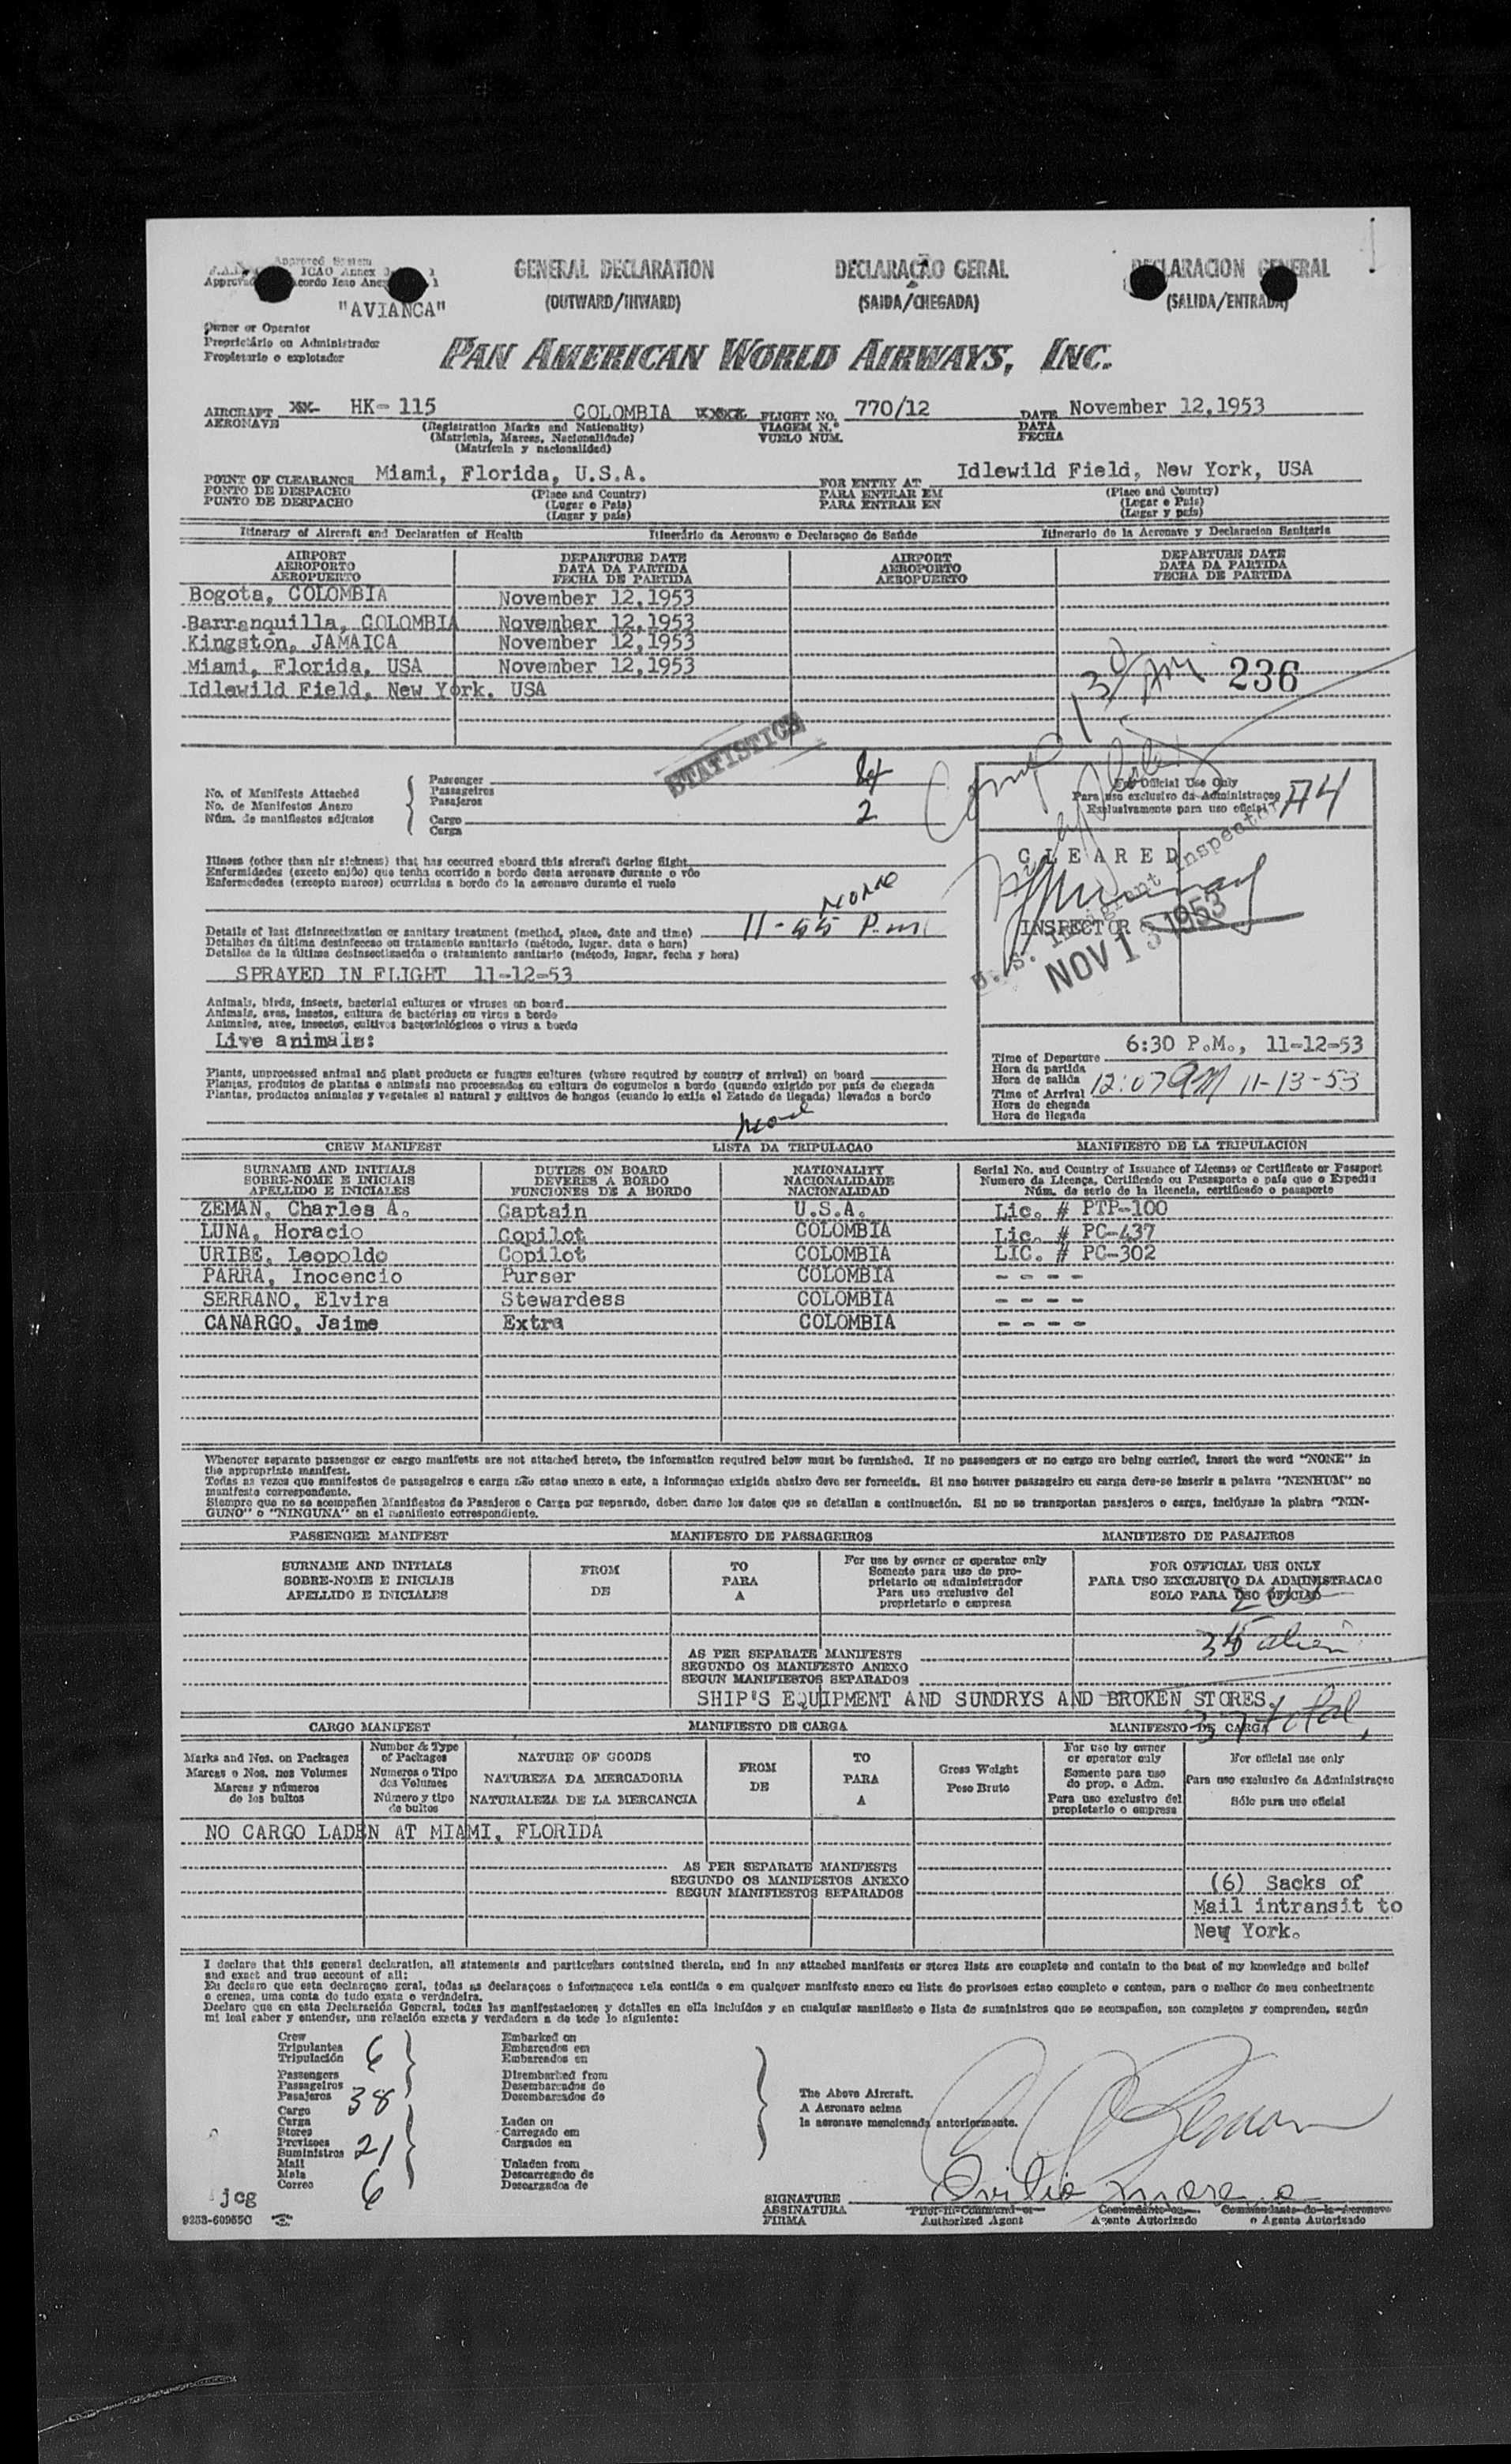 Approved System
ICAO Annex
Acordo Icao Anexo
"AVIANCA"
GENERAL DECLARATION
(OUTWARD/INWARD)
DECLARAÇÃO GERAL
(SAIDA/CHEGADA)
DECLARACION GENERAL
(SALIDA/ENTRADA)
Owner or Operator
Proprietário ou Administrador
Propietario o explotador
PAN AMERICAN WORLD AIRWAYS, INC.
AIRCRAFT HK-115 COLOMBIA FLIGHT NO. 770/12 DATE November 12,1953
AERONAVE (Registration Marks and Nationality) VIAGEM N.º DATA
(Matricula, Marcas, Nacionalidade) VUELO NUM. FECHA
(Matrícula y nacionalidad)
POINT OF CLEARANCE Miami, Florida, U.S.A. FOR ENTRY AT Idlewild Field, New York, USA
PONTO DE DESPACHO (Place and Country) PARA ENTRAR EM (Place and Country)
PUNTO DE DESPACHO (Lugar e País) PARA ENTRAR EN (Lugar e País)
(Lugar y país) (Lugar y país)
Itinerary of Aircraft and Declaration of Health Itinerário da Aeronave e Declaraçao de Saúde Itinerario de la Aeronave y Declaracion Sanitaria
AIRPORT DEPARTURE DATE AIRPORT DEPARTURE DATE
AEROPORTO DATA DA PARTIDA AEROPORTO DATA DA PARTIDA
AEROPUERTO FECHA DE PARTIDA AEROPUERTO FECHA DE PARTIDA
Bogota, COLOMBIA November 12,1953
Barranquilla, COLOMBIA November 12,1953
Kingston, JAMAICA November 12,1953
Miami, Florida, USA November 12,1953
Idlewild Field, New York. USA
236
STATISTICS
No. of Manifests Attached
No. de Manifestos Anexo
Núm. de manifiestos adjuntos
Passenger
Passageiros
Pasajeros
Cargo 2
Carga
For Official Use Only
Para uso exclusivo da Administraçao
Exclusivamente para uso oficial
A4
CLEARED
INSPECTOR
U.S. Immigrant Inspector
NOV 13 1953
Illness (other than air sickness) that has occurred aboard this aircraft during flight
Enfermidades (exceto enjôo) que tenha ocorrido a bordo desta aeronave durante o vôo
Enfermedades (excepto mareos) ocurridas a bordo de la aeronave durante el vuelo
None
Details of last disinsectization or sanitary treatment (method, place, date and time) 11-55 P.m
Detalhes da última desinfeccao ou tratamento sanitario (método, lugar, data e hora)
Detalles de la última desinsectización o tratamiento sanitario (método, lugar, fecha y hora)
SPRAYED IN FLIGHT 11-12-53
Animals, birds, insects, bacterial cultures or viruses on board
Animais, aves, insetos, cultura de bactérias ou virus a bordo
Animales, aves, insectos, cultivos bacteriológicos o virus a bordo
Live animals:
Plants, unprocessed animal and plant products or fungus cultures (where required by country of arrival) on board
Plantas, produtos de plantas e animais nao processados ou cultura de cogumelos a bordo (quando exigido por país de chegada
Plantas, productos animales y vegetales al natural y cultivos de hongos (cuando lo exija el Estado de llegada) llevados a bordo
None
6:30 P.M., 11-12-53
Time of Departure
Hora da partida
Hora de salida
12:07 AM 11-13-53
Time of Arrival
Hora de chegada
Hora de llegada
CREW MANIFEST LISTA DA TRIPULACAO MANIFIESTO DE LA TRIPULACION
SURNAME AND INITIALS DUTIES ON BOARD NATIONALITY Serial No. and Country of Issuance of License or Certificate or Passport
SOBRE-NOME E INICIAIS DEVERES A BORDO NACIONALIDADE Numero da Licença, Certificado ou Passaporte e país que o Expediu
APELLIDO E INICIALES FUNCIONES DE A BORDO NACIONALIDAD Núm. de serie de la licencia, certificado o pasaporte
ZEMAN, Charles A. Captain U.S.A. Lic. # PTP-100
LUNA, Horacio Copilot COLOMBIA Lic. # PC-437
URIBE, Leopoldo Copilot COLOMBIA LIC. # PC-302
PARRA, Inocencio Purser COLOMBIA - - - -
SERRANO, Elvira Stewardess COLOMBIA - - - -
CANARGO, Jaime Extra COLOMBIA - - - -
Whenever separate passenger or cargo manifests are not attached hereto, the information required below must be furnished. If no passengers or no cargo are being carried, insert the word "NONE" in
the appropriate manifest.
Todas as vezes que manifestos de passageiros e carga não estao anexo a este, a informaçao exigida abaixo deve ser fornecida. Si nao houver passageiro ou carga deve-se inserir a palavra "NENHUM" no
manifesto correspondente.
Siempre que no se acompañen Manifiestos de Pasajeros o Carga por separado, deben darse los datos que se detallan a continuación. Si no se transportan pasajeros o carga, inclúyase la plabra "NIN-
GUNO" o "NINGUNA" en el manifiesto correspondiente.
PASSENGER MANIFEST MANIFESTO DE PASSAGEIROS MANIFIESTO DE PASAJEROS
SURNAME AND INITIALS FROM TO For use by owner or operator only FOR OFFICIAL USE ONLY
SOBRE-NOME E INICIAIS DE PARA Somente para uso do pro- PARA USO EXCLUSIVO DA ADMINISTRACAO
APELLIDO E INICIALES A prietario ou administrador SOLO PARA USO OFICIAL
Para uso exclusivo del
propietario o empresa
35 alien
AS PER SEPARATE MANIFESTS
SEGUNDO OS MANIFESTO ANEXO
SEGUN MANIFIESTOS SEPARADOS
SHIP'S EQUIPMENT AND SUNDRYS AND BROKEN STORES.
37 total
CARGO MANIFEST MANIFIESTO DE CARGA MANIFESTO DE CARGA
Marks and Nos. on Packages Number & Type of Packages NATURE OF GOODS FROM TO Gross Weight For use by owner or operator only For official use only
Marcas e Nos. nos Volumes Numeros o Tipo dos Volumes NATUREZA DA MERCADORIA DE PARA Peso Bruto Somente para uso do prop. e Adm. Para uso exclusivo da Administraçao
Marcas y números de los bultos Número y tipo de bultos NATURALEZA DE LA MERCANCIA A Para uso exclusivo del propietario o empresa Sólo para uso oficial
NO CARGO LADEN AT MIAMI, FLORIDA
AS PER SEPARATE MANIFESTS
SEGUNDO OS MANIFESTOS ANEXO
SEGUN MANIFIESTOS SEPARADOS
(6) Sacks of
Mail intransit to
New York.
I declare that this general declaration, all statements and particulars contained therein, and in any attached manifests or stores lists are complete and contain to the best of my knowledge and belief
and exact and true account of all:
Eu declaro que esta declaraçao geral, todas as declaraçoes e informaçoes nela contida e em qualquer manifesto anexo ou lista de provisoes estao completo e contem, para o melhor de meu conhecimento
e crenca, uma conta de tudo exata e verdadeira.
Declaro que en esta Declaración General, todas las manifestaciones y detalles en ella incluídos y en cualquier manifiesto o lista de suministros que se acompañen, son completos y comprenden, según
mi leal saber y entender, una relación exacta y verdadera a de todo lo siguiente:
Crew
Tripulantes 6
Tripulación
Passengers
Passageiros 38
Pasajeros
Cargo
Carga
Stores
Provisoes 21
Suministros
Mail
Mala 6
Correo
Embarked on
Embarcados em
Embarcados en
Disembarked from
Desembarcados de
Desembarcados de
Laden on
Carregado em
Cargados en
Unladen from
Descarregado de
Descargados de
The Above Aircraft.
A Aeronave acima
la aeronave mencionada anteriormente.
jcg
9253-60955C
SIGNATURE Pilot-in-Command or Comandante ou Commandante de la Aeronave
ASSINATURA Authorized Agent Agente Autorizado o Agente Autorizado
FIRMA